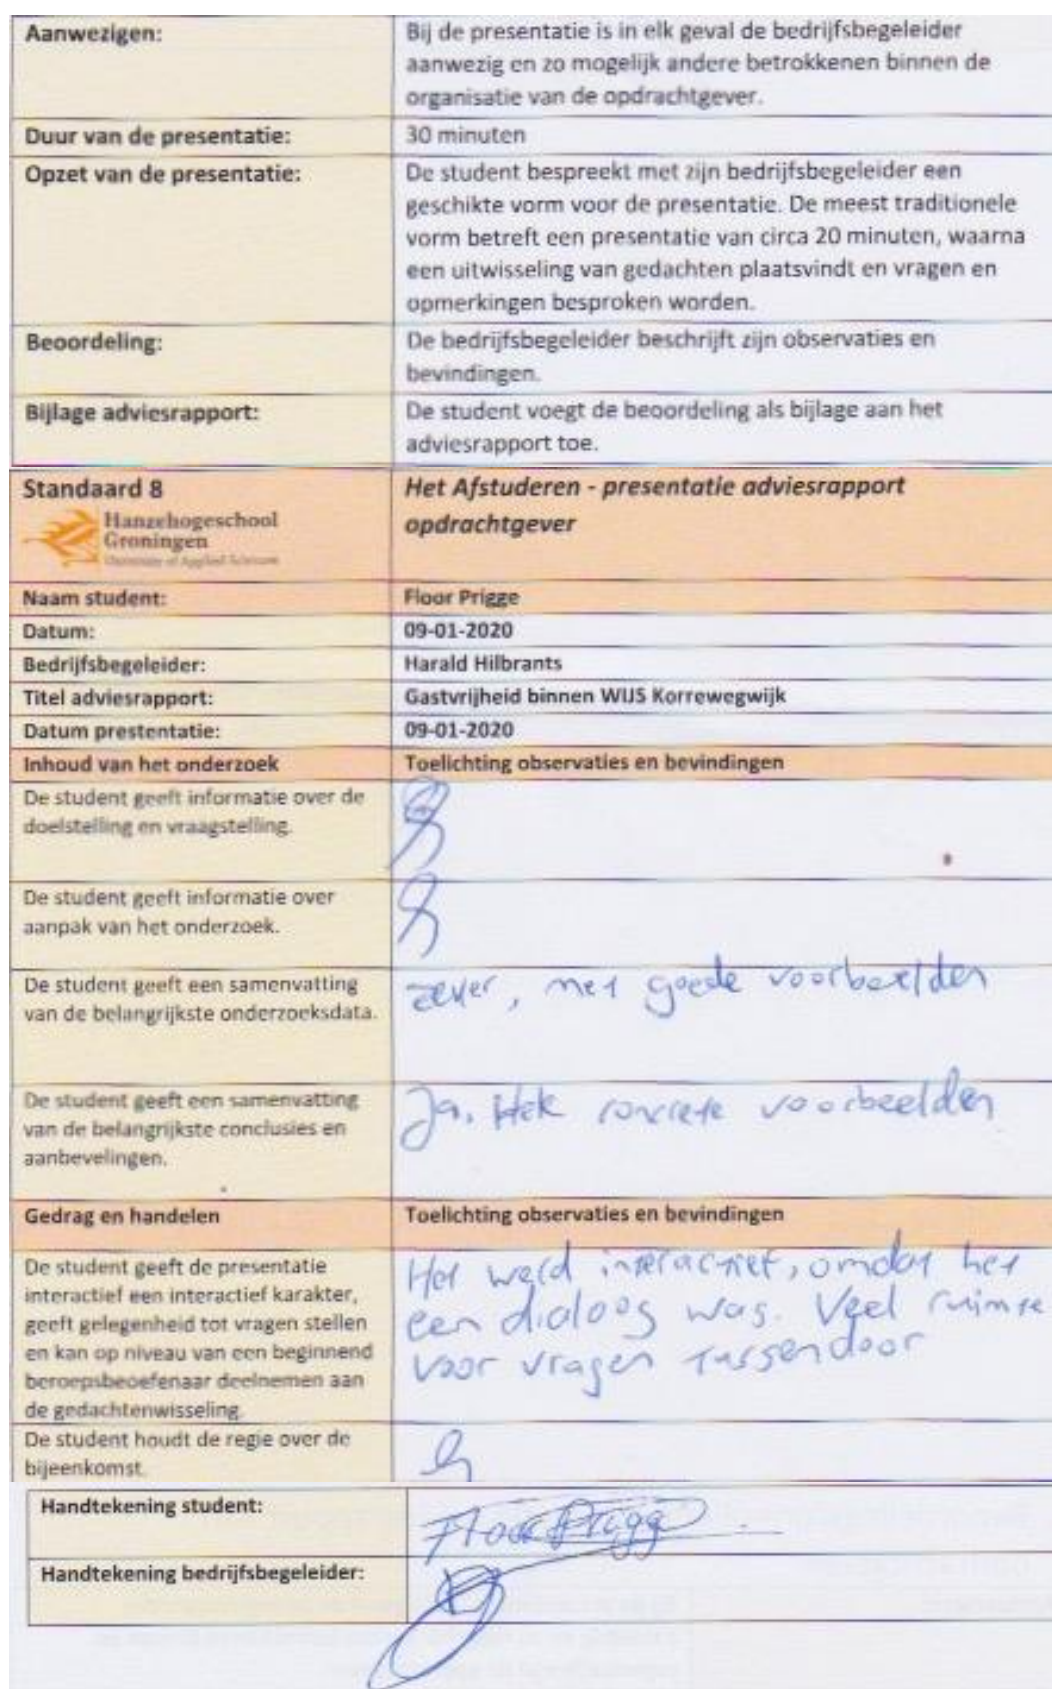 Aanwezigen:
Bij de presentatie is in elk geval de bedrijfsbegeleider
aanwezig en zo mogelijk andere betrokkenen binnen de
organisatie van de opdrachtgever.
Duur van de presentatie:
30 minuten
Opzet van de presentatie:
De student bespreekt met zijn bedrijfsbegeleider een
geschikte vorm voor de presentatie. De meest traditionele
vorm betreft een presentatie van circa 20 minuten, waarna
een uitwisseling van gedachten plaatsvindt en vragen en
opmerkingen besproken worden.
Beoordeling:
De bedrijfsbegeleider beschrijft zijn observaties en
bevindingen.
Bijlage adviesrapport:
De student voegt de beoordeling als bijlage aan het
adviesrapport toe.
Standaard 8
Hanzehogeschool
Groningen
University of Applied Sciences
Het Afstuderen - presentatie adviesrapport
opdrachtgever
Naam student:
Floor Prigge
Datum:
09-01-2020
Bedrijfsbegeleider:
Harald Hilbrants
Titel adviesrapport:
Gastvrijheid binnen WIJS Korrewegwijk
Datum prestentatie:
09-01-2020
Inhoud van het onderzoek
Toelichting observaties en bevindingen
De student geeft informatie over de
doelstelling en vraagstelling.
De student geeft informatie over
aanpak van het onderzoek.
De student geeft een samenvatting
van de belangrijkste onderzoeksdata.
zeker, met goede voorbeelden
De student geeft een samenvatting
van de belangrijkste conclusies en
aanbevelingen.
Ja, concrete voorbeelden
Gedrag en handelen
Toelichting observaties en bevindingen
De student geeft de presentatie
interactief een interactief karakter,
geeft gelegenheid tot vragen stellen
en kan op niveau van een beginnend
beroepsbeoefenaar deelnemen aan
de gedachtenwisseling.
Het werd interactief, omdat het
een dialoog was. Veel ruimte
voor vragen tussendoor
De student houdt de regie over de
bijeenkomst.
Handtekening student:
Floor Prigge
Handtekening bedrijfsbegeleider: